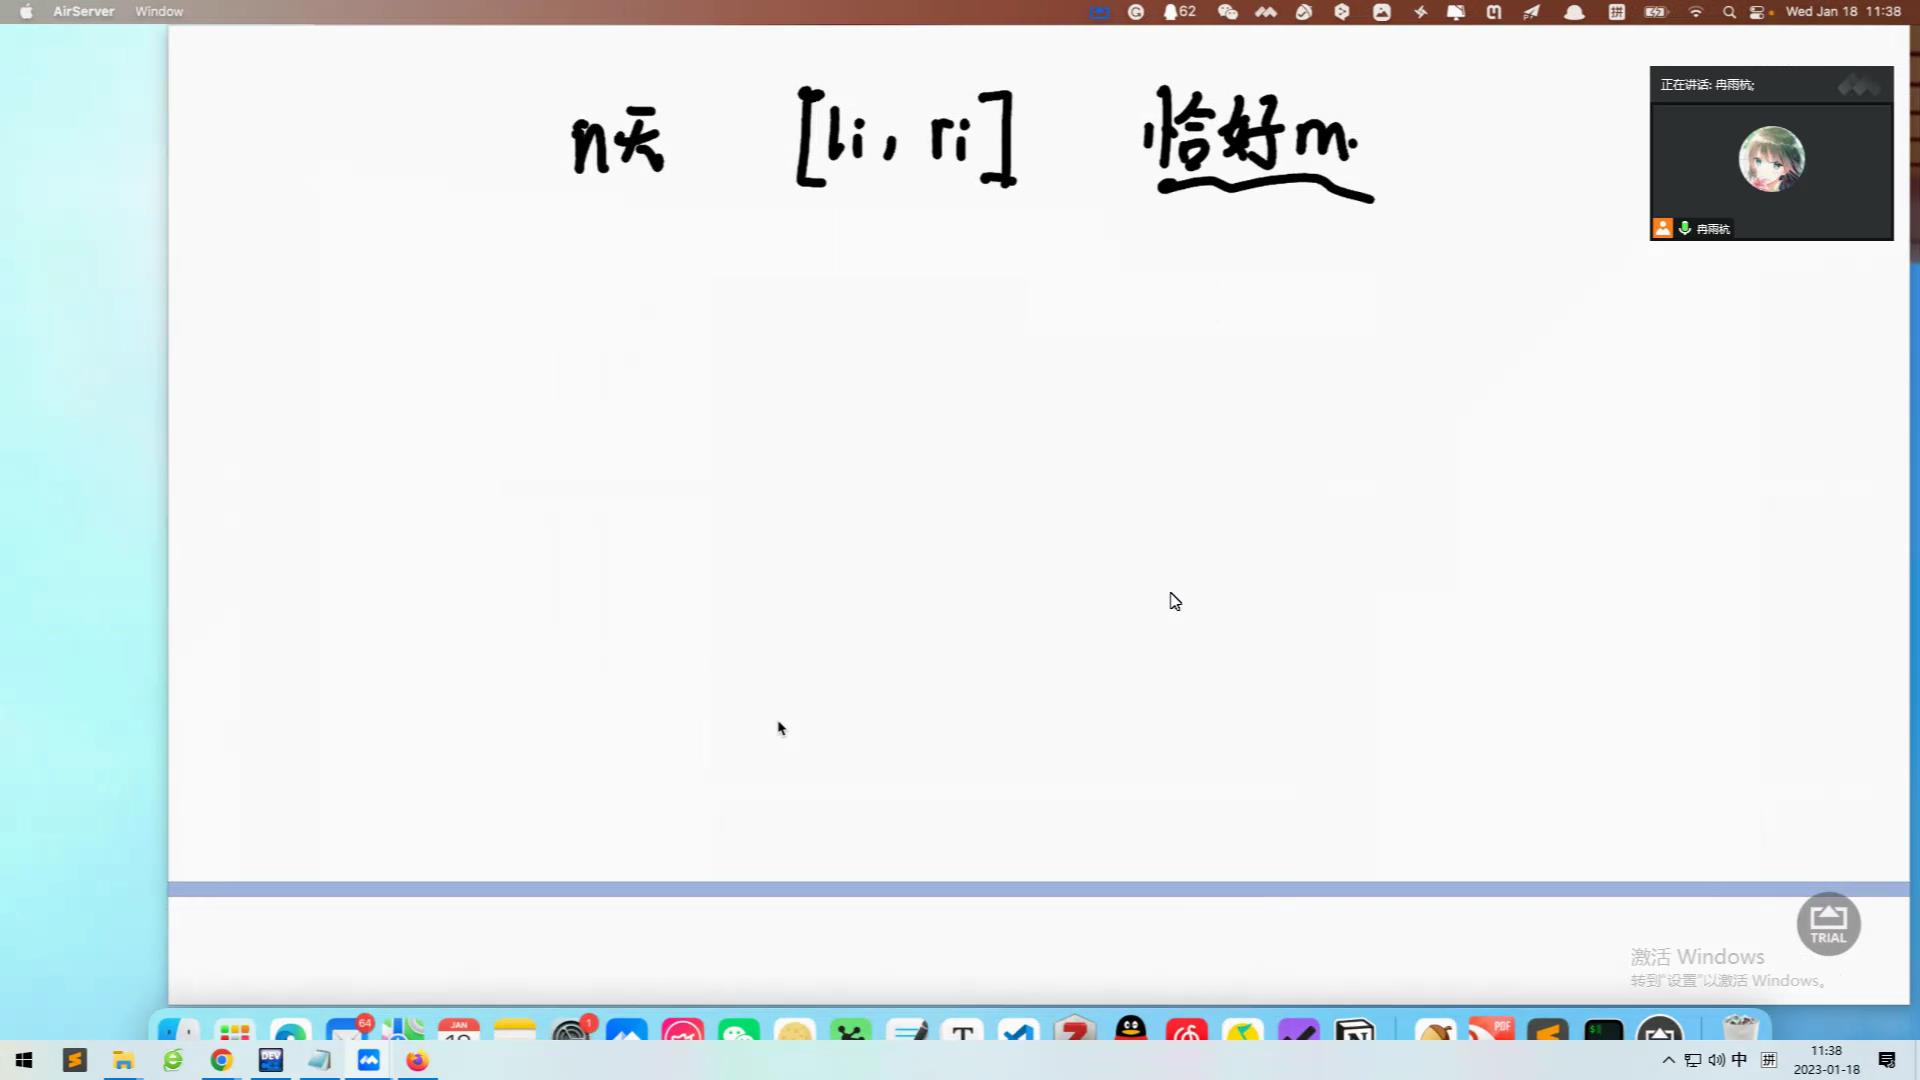 AirServer Window 62 Wed Jan 18 11:38
n天 [li, ri] 恰好m.
正在讲话: 冉雨杭;
冉雨杭
TRIAL
激活 Windows
转到“设置”以激活 Windows。
64 JAN 1 PDF
DEV
中 拼 11:38
2023-01-18